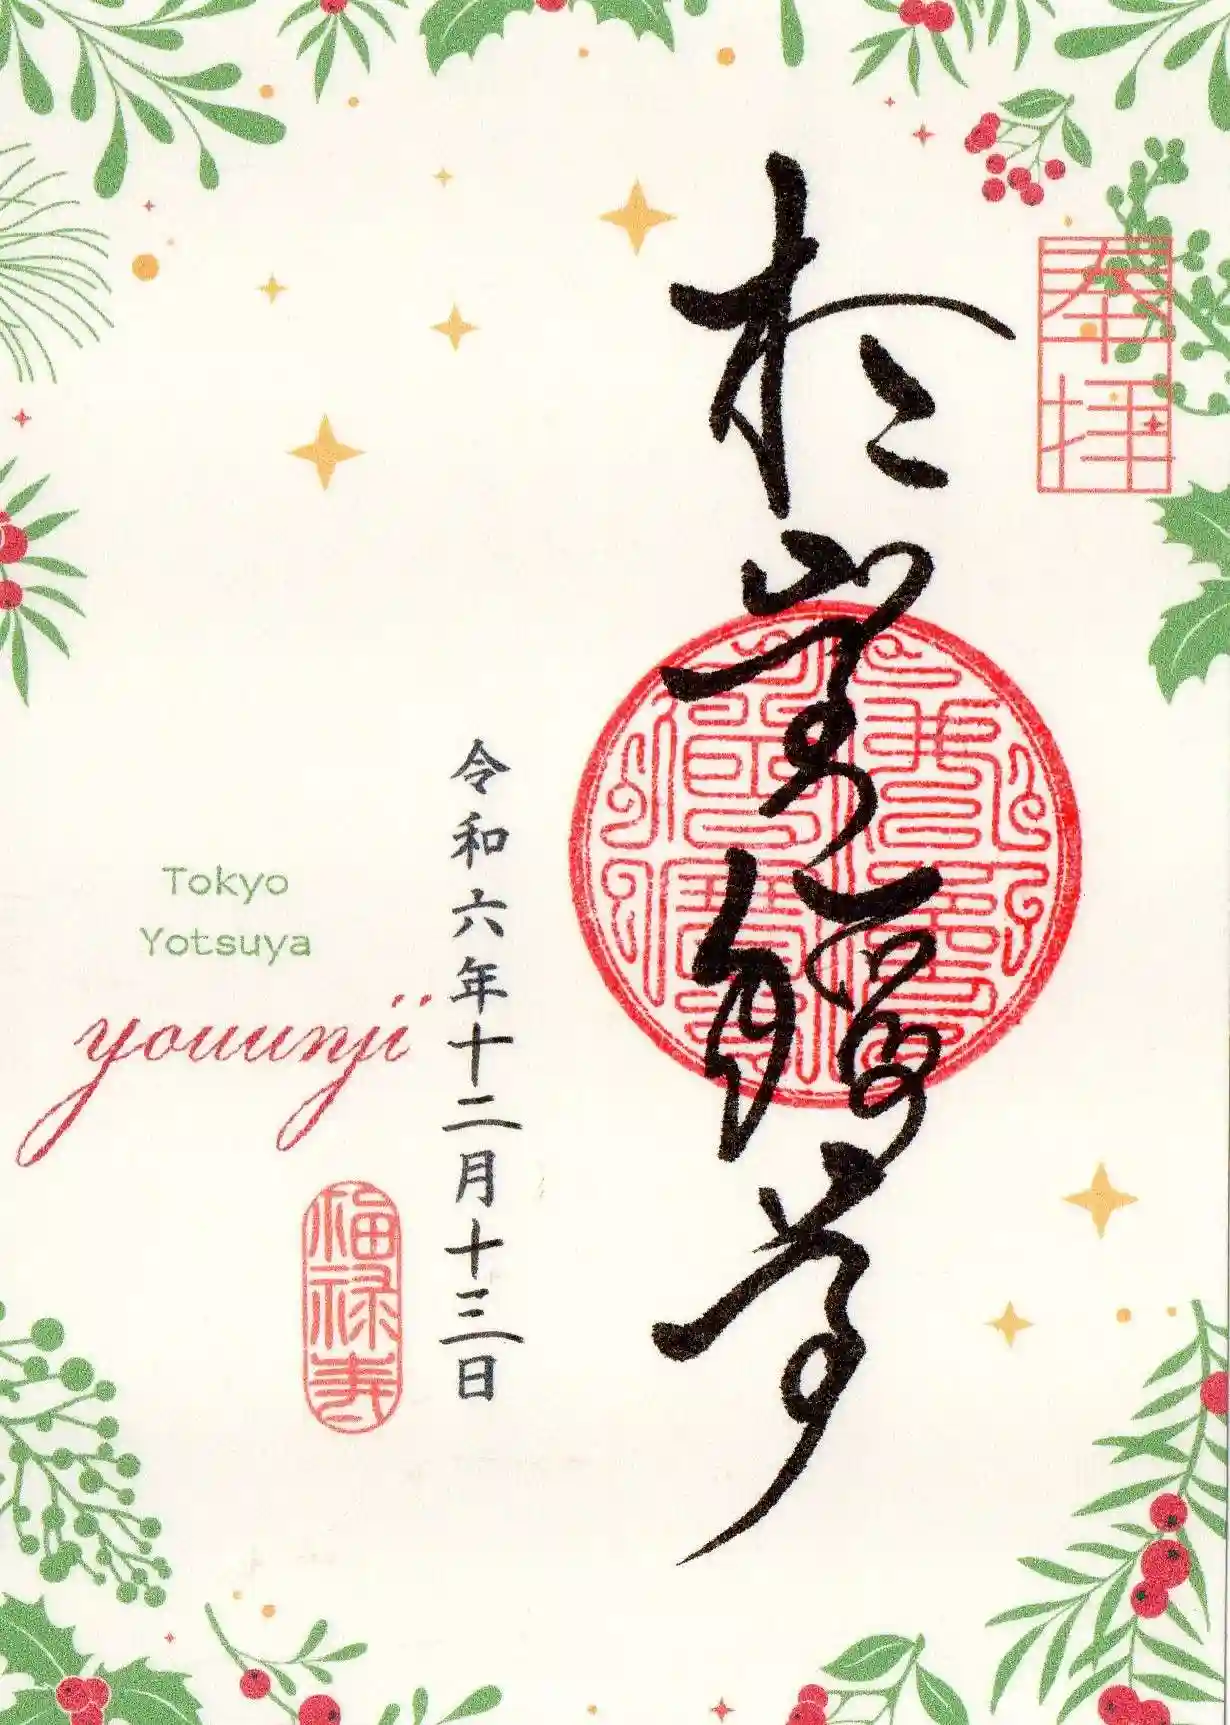 奉拝
於岩稲荷
令和六年十二月十三日
Tokyo
Yotsuya
youunji
福禄寿